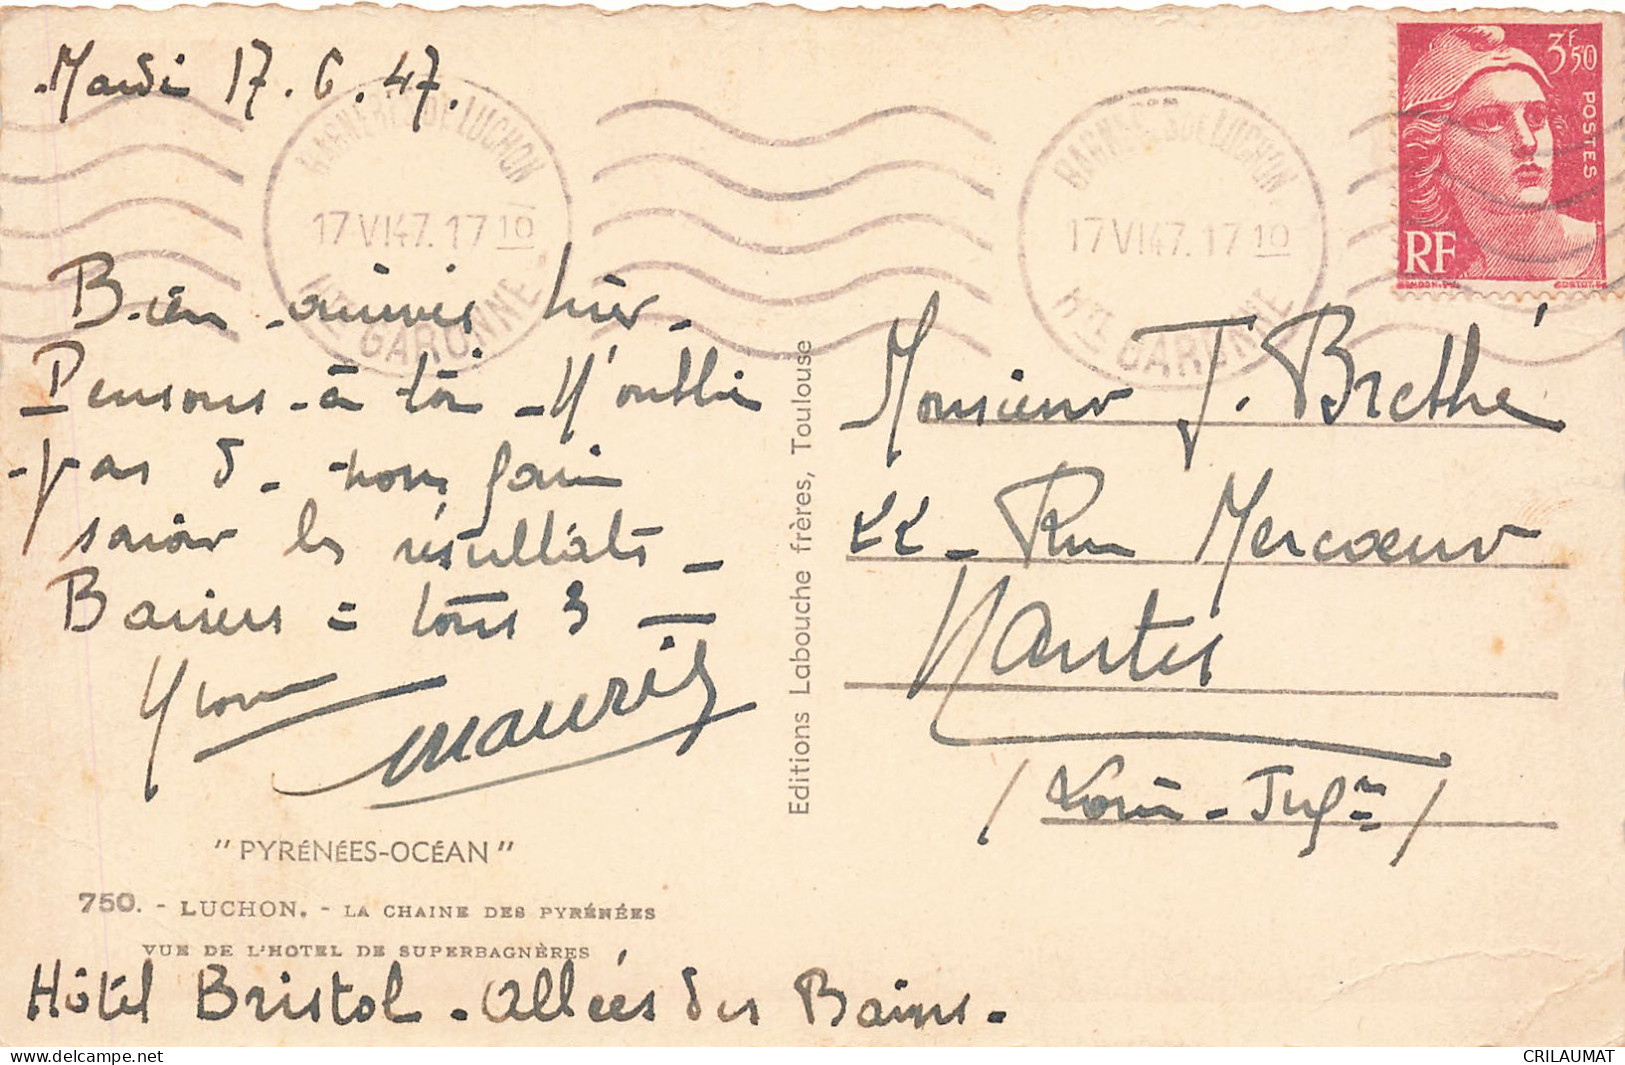 Mardi 17.6.47.
BAGNERES DE LUCHON
17 VI 47. 17 10
HTE GARONNE
BAGNERES DE LUCHON
17 VI 47. 17 10
HTE GARONNE
3F50
POSTES
RF
Bien arrivés hier -
Pensons à toi - N'oublie
pas d - nous faire
savoir les résultats -
Baisers à tous 3 -
Yvonne
Maurice
"PYRÉNÉES-OCÉAN"
750. - LUCHON. - LA CHAINE DES PYRÉNÉES
VUE DE L'HOTEL DE SUPERBAGNÈRES
Hôtel Bristol - Allées des Bains -
Editions Labouche frères, Toulouse
Monsieur J. Brethé
22 - Rue Mercoeur
Nantes
(Loire-Infre)
https://www.delcampe.net
CRILAUMAT